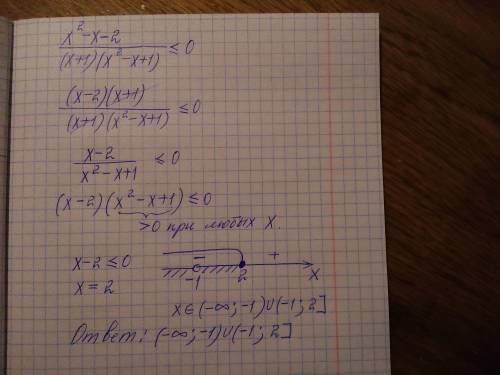 x² - x - 2 / (x+1)(x² - x+1) ≤ 0
(x-2)(x+1) / (x+1)(x² - x+1) ≤ 0
x-2 / x² - x+1 ≤ 0
(x-2)(x² - x+1) ≤ 0
>0 при любых x.
x-2 ≤ 0
x = 2
- +
-1 2 x
x∈(-∞; -1)∪(-1; 2]
Ответ: (-∞; -1)∪(-1; 2]